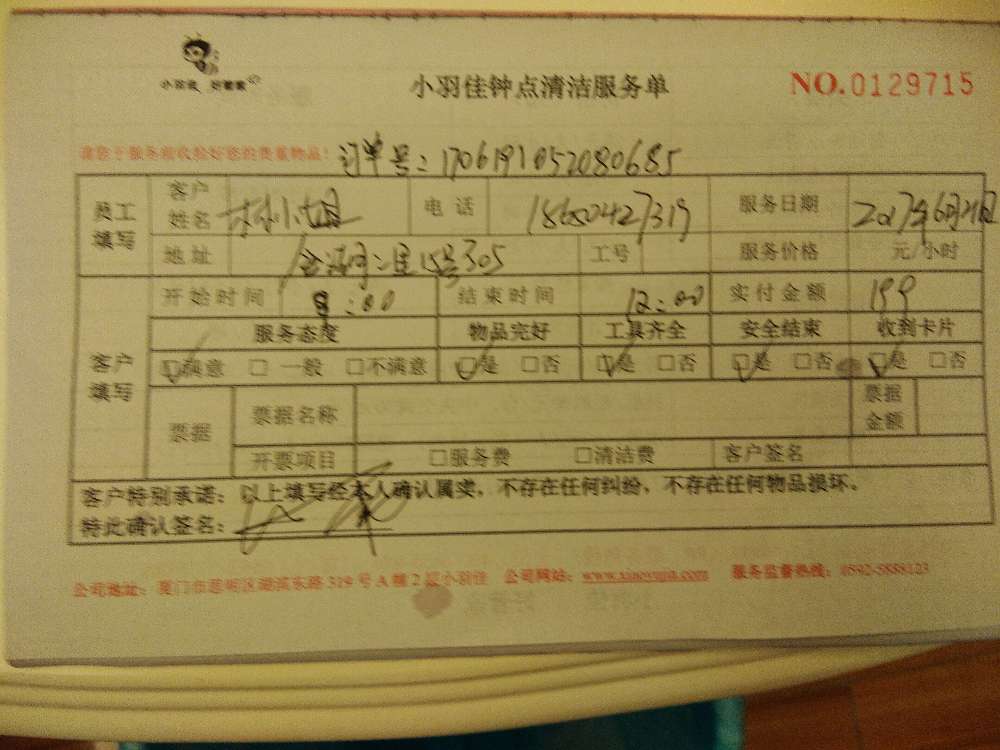 小羽佳 好管家
小羽佳钟点清洁服务单
NO.0129715
请您于服务前收拾好您的贵重物品！
订单号：1706191052080685
员工填写 客户姓名 林小姐 电话 18650427319 服务日期 2017年6月21日
地址 15号305 工号 服务价格 元/小时
客户填写 开始时间 8:00 结束时间 12:00 实付金额 199
服务态度 物品完好 工具齐全 安全结束 收到卡片
☑满意 □一般 □不满意 ☑是 □否 ☑是 □否 ☑是 □否 ☑是 □否
票据 票据名称 票据金额
开票项目 □服务费 □清洁费 客户签名
客户特别承诺：以上填写经本人确认属实，不存在任何纠纷，不存在任何物品损坏。
特此确认签名：
公司地址：厦门市思明区湖滨东路319号A幢2层小羽佳 公司网站：www.xiaoyujia.com 服务监督热线：0592-5888123